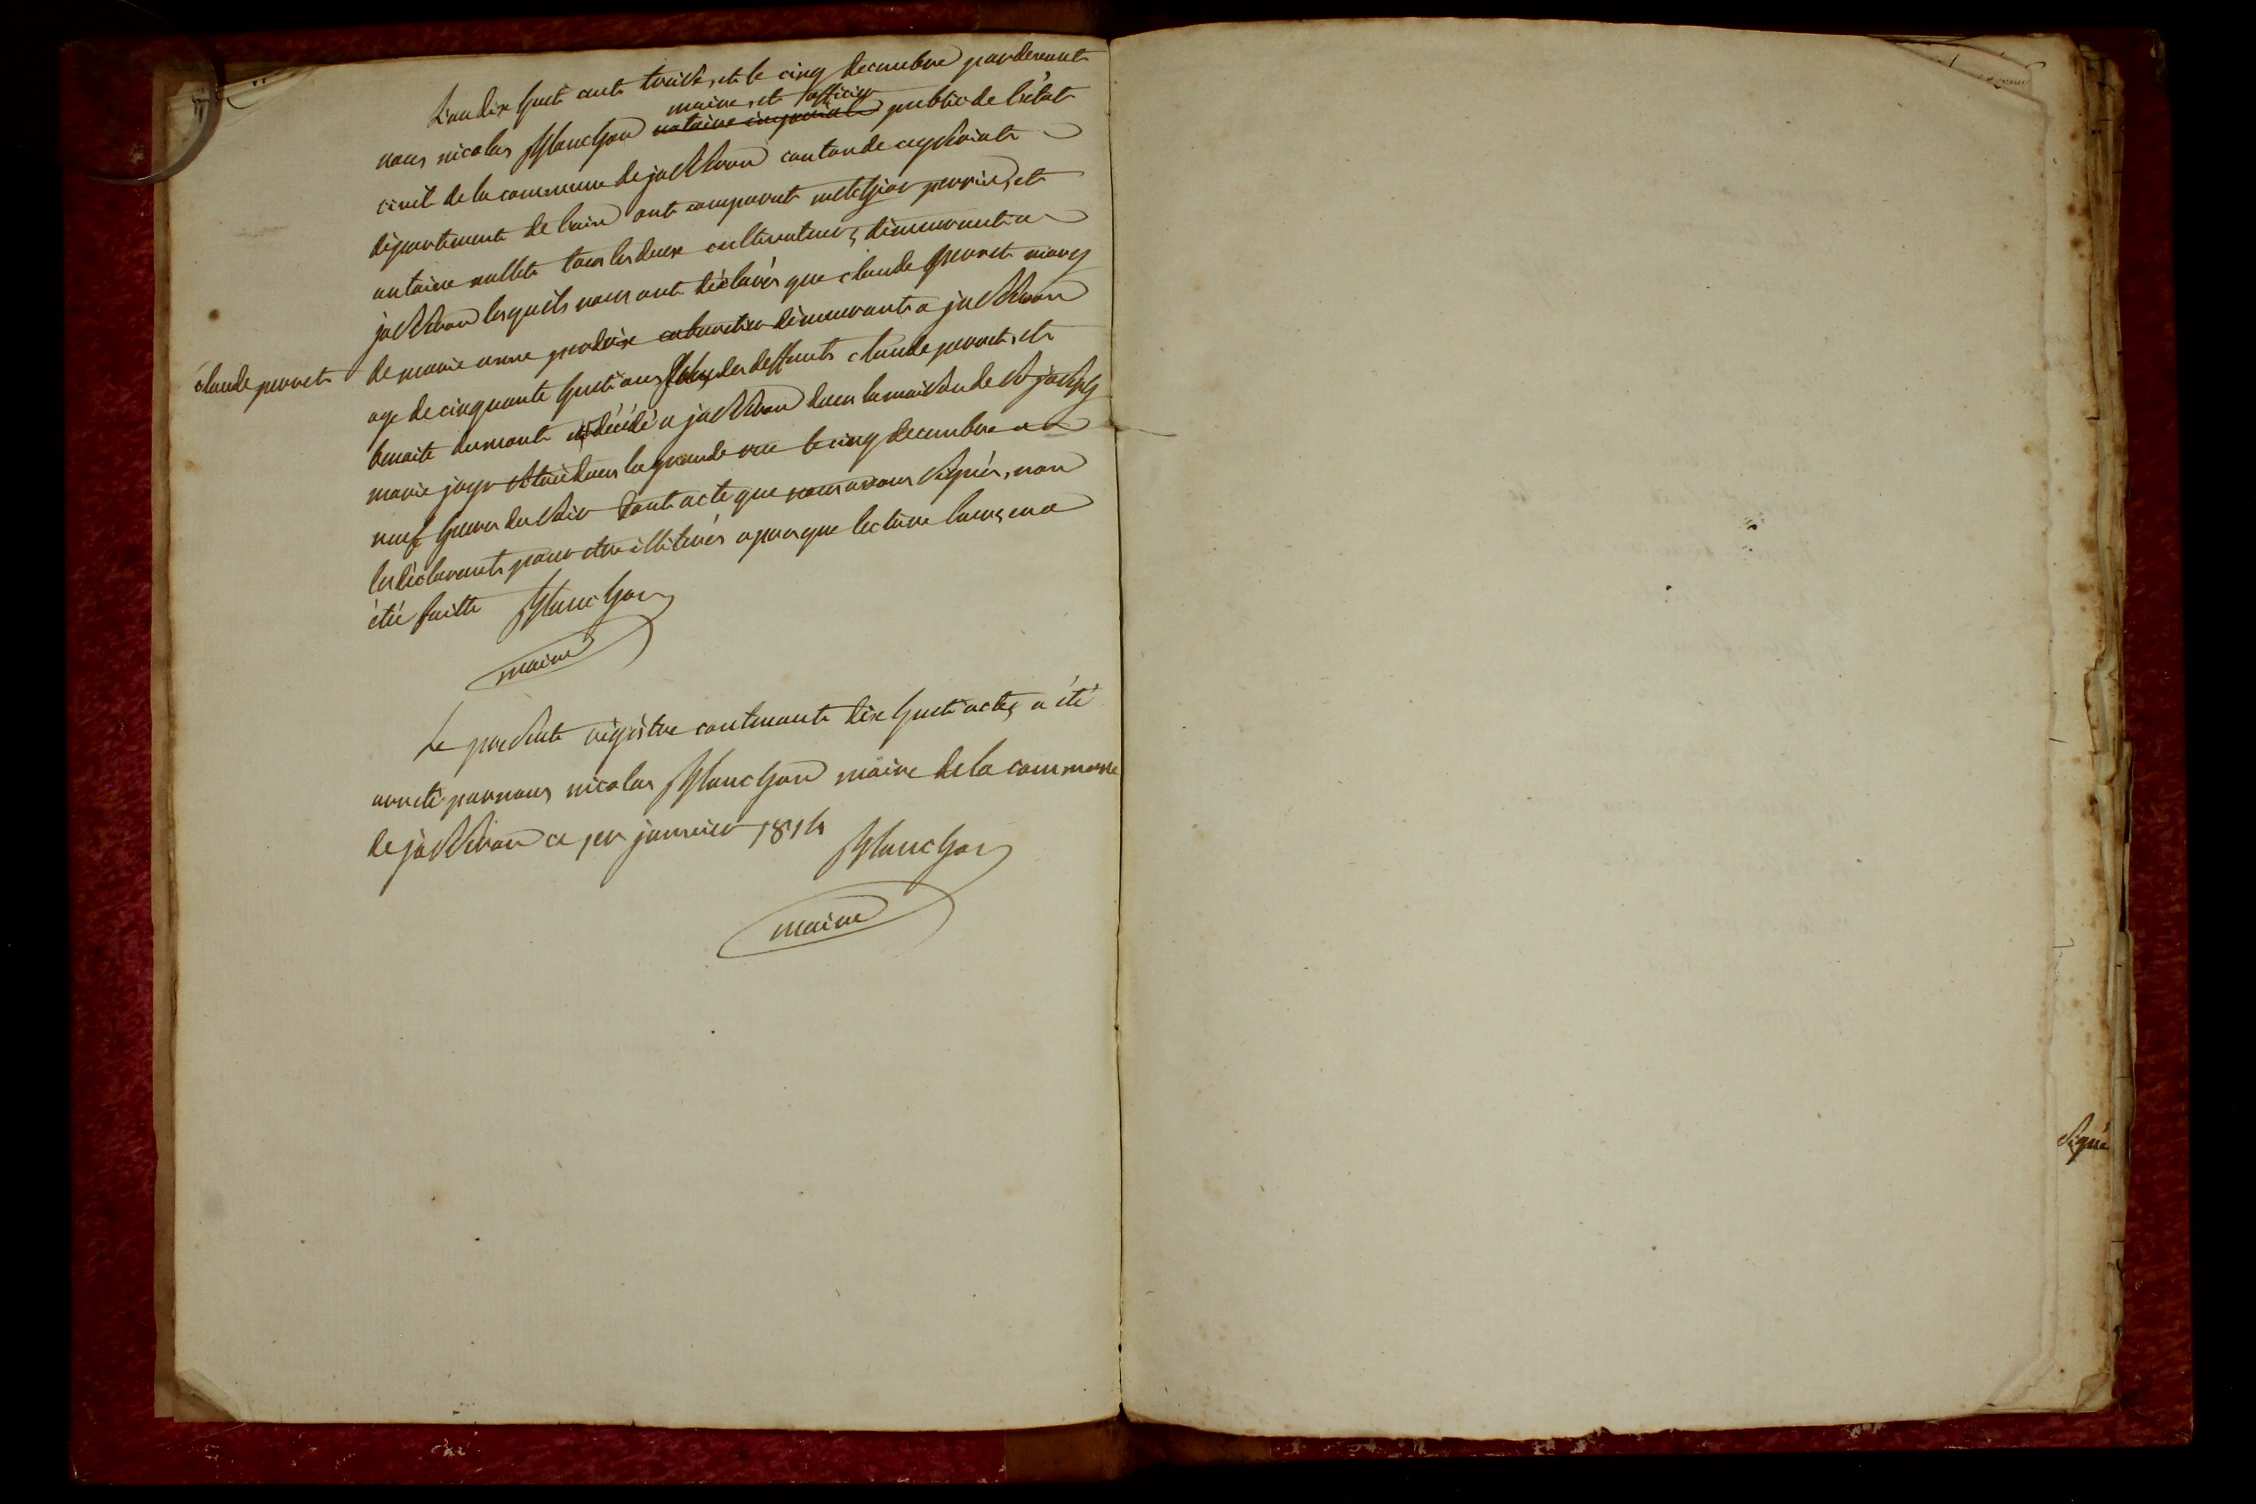 L'an dix huit cent treize, et le cinq decembre pardevant
nous nicolas planchon notaire imperiale maire, et officier public de l'état
civil de la commune de jasseron canton de ceyseriat
département de l'ain ont comparut melchior perrin, et
antoine nallet tous les deux cultivateurs, demeurant a
jasseron lesquels nous ont déclarés que claude perret marez
de marie anne perdrix cabaretier demeurant a jasseron
claude perret
age de cinquante huit ans fils des deffunts claude perret, et
benoite dumont est décédé a jasseron dans la maison de st joseph
marie joyr située dans la grande rue le cinq decembre a
neuf heures du soir dont acte que nous avons signés, non
les déclarants pour etre illitérés apres que lecture leurs en a
été faitte planchon
maire
Le présent régistre contenant dix huit actes, a été
arreté par nous nicolas planchon maire de la commune
de jasseron ce 1er janvier 1814 planchon
maire
signé